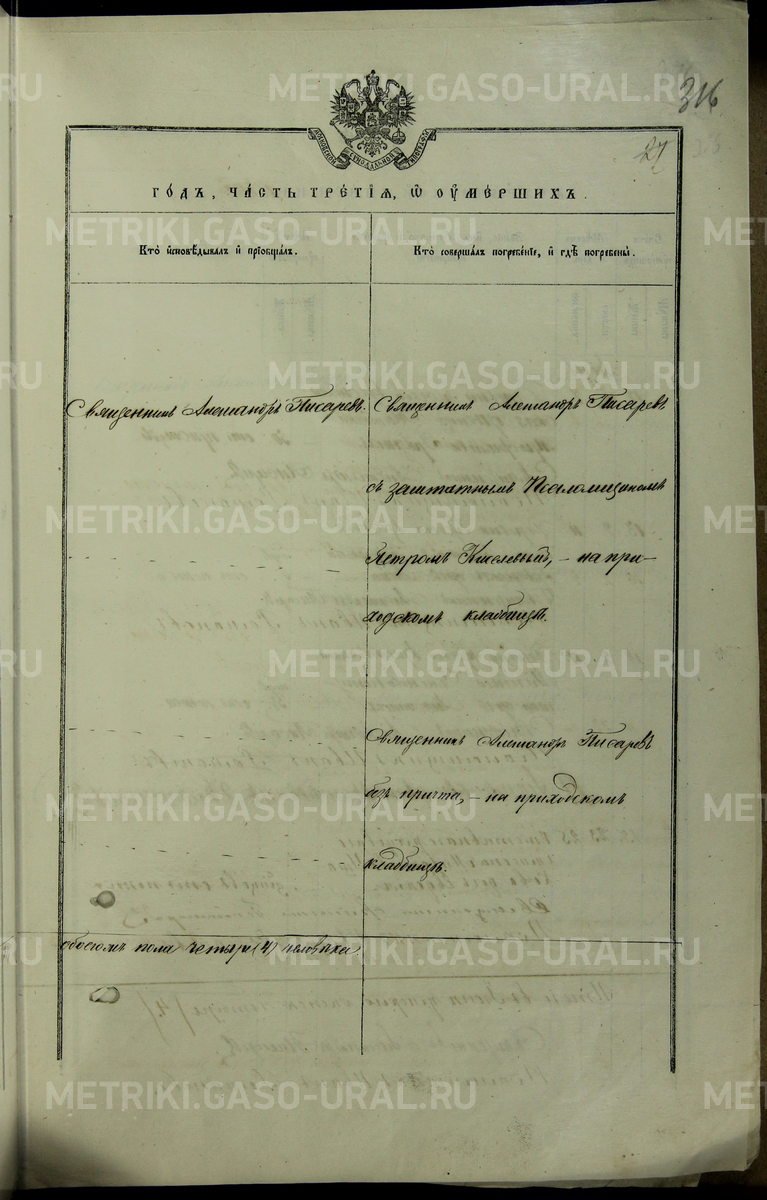 316
27
МОСКОВСКОЙ СѴНОДАЛЬНОЙ ТИПОГРАФІИ
ГО́ДЪ, ЧА́СТЬ ТРЕ́ТІЯ, Ѡ҆ ОУ҆МЕ́РШИХЪ.
Кто̀ и҆сповѣ́дывалъ и҆ прїѡбща́лъ.
Кто̀ соверша́лъ погребе́нїе, и҆ гдѣ̀ погребены̀.
Священникъ Александръ Писаревъ.
Священникъ Александръ Писаревъ
съ заштатнымъ Псаломщикомъ
Петромъ Киселевымъ, - на при-
ходскомъ кладбищѣ.
Священникъ Александръ Писаревъ
безъ причта, - на приходскомъ
кладбищѣ.
обоего пола четыре (4) человѣка
METRIKI.GASO-URAL.RU